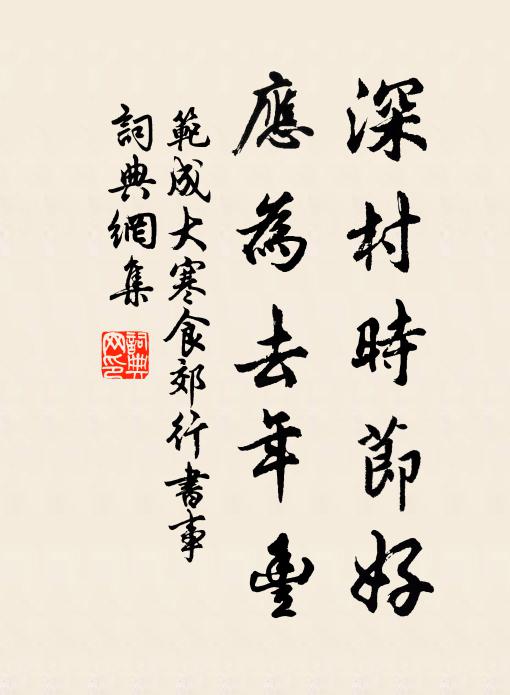 深村時節好
應為去年豊
範成大寒食郊行書事
詞典網集
詞典网印